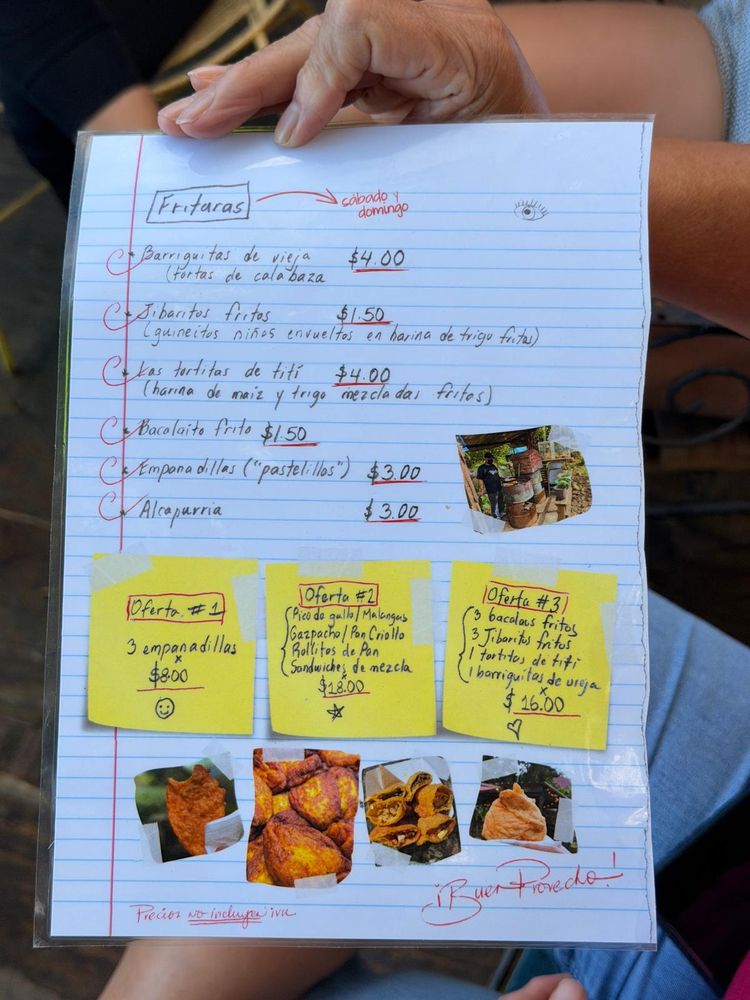 Frituras
sábado y
domingo
Barriguitas de vieja $4.00
(tortas de calabaza
Jibaritos fritos $1.50
(guineitos niños envueltos en harina de trigo fritos)
Las tortitas de tití $4.00
(harina de maiz y trigo mezcladas fritos)
Bacalaito frito $1.50
Empanadillas ("pastelillos") $3.00
Alcapurria $3.00
Oferta #1
3 empanadillas
x
$8.00
Oferta #2
Pico de gallo/Malangas
Gazpacho/Pan Criollo
Rollitos de Pan
Sandwiches de mezcla
x
$18.00
Oferta #3
3 bacalaos fritos
3 Jibaritos fritos
1 tortitas de tití
1 barriguitas de vieja
x
$16.00
Precios no incluyen ivu
¡Buen Provecho!